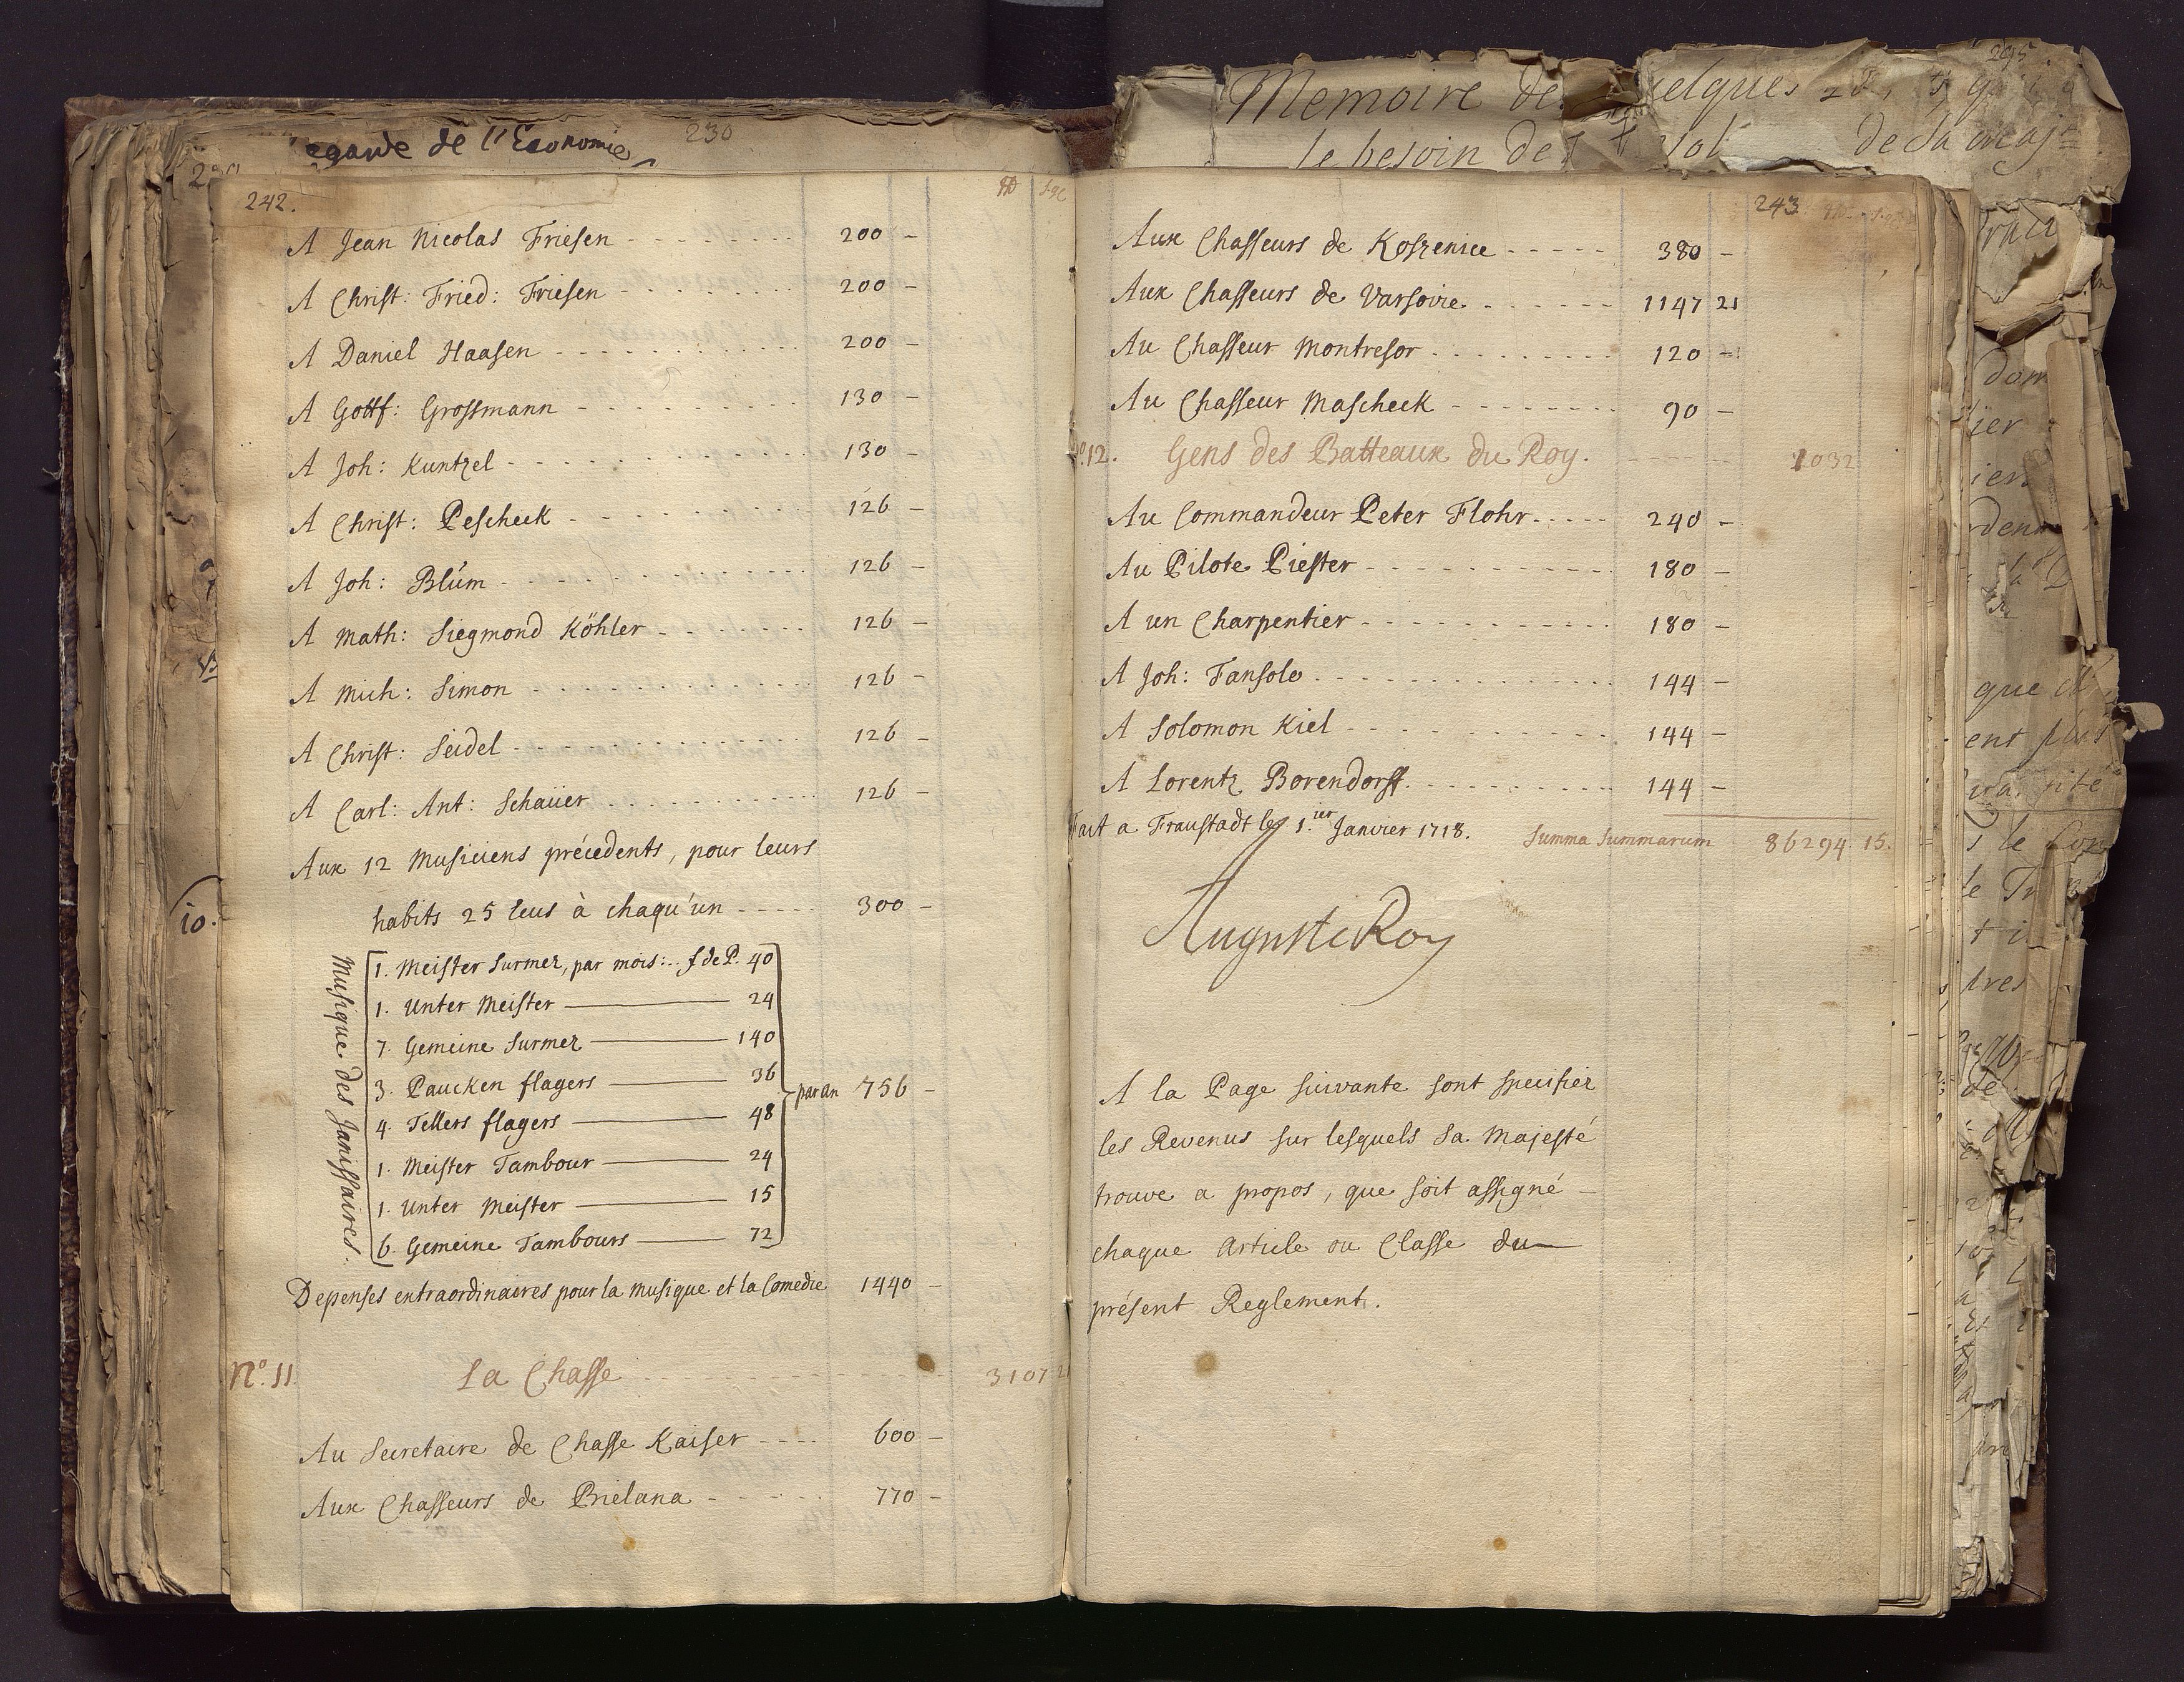 egarde de l'Economie
230
242.
A Jean Nicolas Friesen - - - - - - - - 200 -
A Christ: Fried: Friesen - - - - - - - - 200 -
A Daniel Haasen - - - - - - - - - - - 200 -
A Gottf: Grossmann - - - - - - - - - - 130 -
A Joh: Kuntzel - - - - - - - - - - - - 130 -
A Christ: Pescheck - - - - - - - - - - 126 -
A Joh: Blüm - - - - - - - - - - - - - 126 -
A Math: Siegmond Köhler - - - - - - - - 126 -
A Mich: Simon - - - - - - - - - - - - 126 -
A Christ: Seidel - - - - - - - - - - - - 126 -
A Carl: Ant: Schaüer - - - - - - - - - - 126 -
Aux 12 Musiciens précedents, pour leurs
habits 25 Ecus à chaqu'un - - - - - 300 -
10.
Musique des Janissaires.
1. Meister Surmer, par mois: f de P. 40
1. Unter Meister — 24
7. Gemeine Surmer — 140
3. Paucken flagers — 36
4. Tellers flagers — 48
1. Meister Tambour — 24
1. Unter Meister — 15
6. Gemeine Tambours — 72
par an 756 -
Depenses entraordinaires pour la Musique et la Comedie 1440 -
No. 11. La Chasse - - - - - - - - - 3107 21
Au Secretaire de Chasse Kaiser - - - - 600 -
Aux Chasseurs de Bielana - - - - - - 770 -
Memoire de quelques
295.
le besoin de de Sa Maj
243
Aux Chasseurs de Koszenice - - - - - 380 -
Aux Chasseurs de Varsovie - - - - - - 1147 21
Au Chasseur Montresor - - - - - - - - 120 -
Au Chasseur Mascheck - - - - - - - - 90 -
No. 12. Gens des Batteaux du Roy. - - - - 1032
Au Commandeur Peter Flohr - - - - - 240 -
Au Pilote Piester - - - - - - - - - - 180 -
A un Charpentier - - - - - - - - - - - 180 -
A Joh: Fansolo - - - - - - - - - - - - 144 -
A Solomon Kiel - - - - - - - - - - - - 144 -
A Lorentz Borendorff - - - - - - - - - 144 -
Fait a Fraustadt le 1.ier Janvier 1718. Summa Summarum 86294 15.
Auguste Roy
A la Page suivante sont specifiez
les Revenus sur lesquels Sa Majesté
trouve a propos, que soit assigné -
chaque Article ou Classe du
présent Reglement.